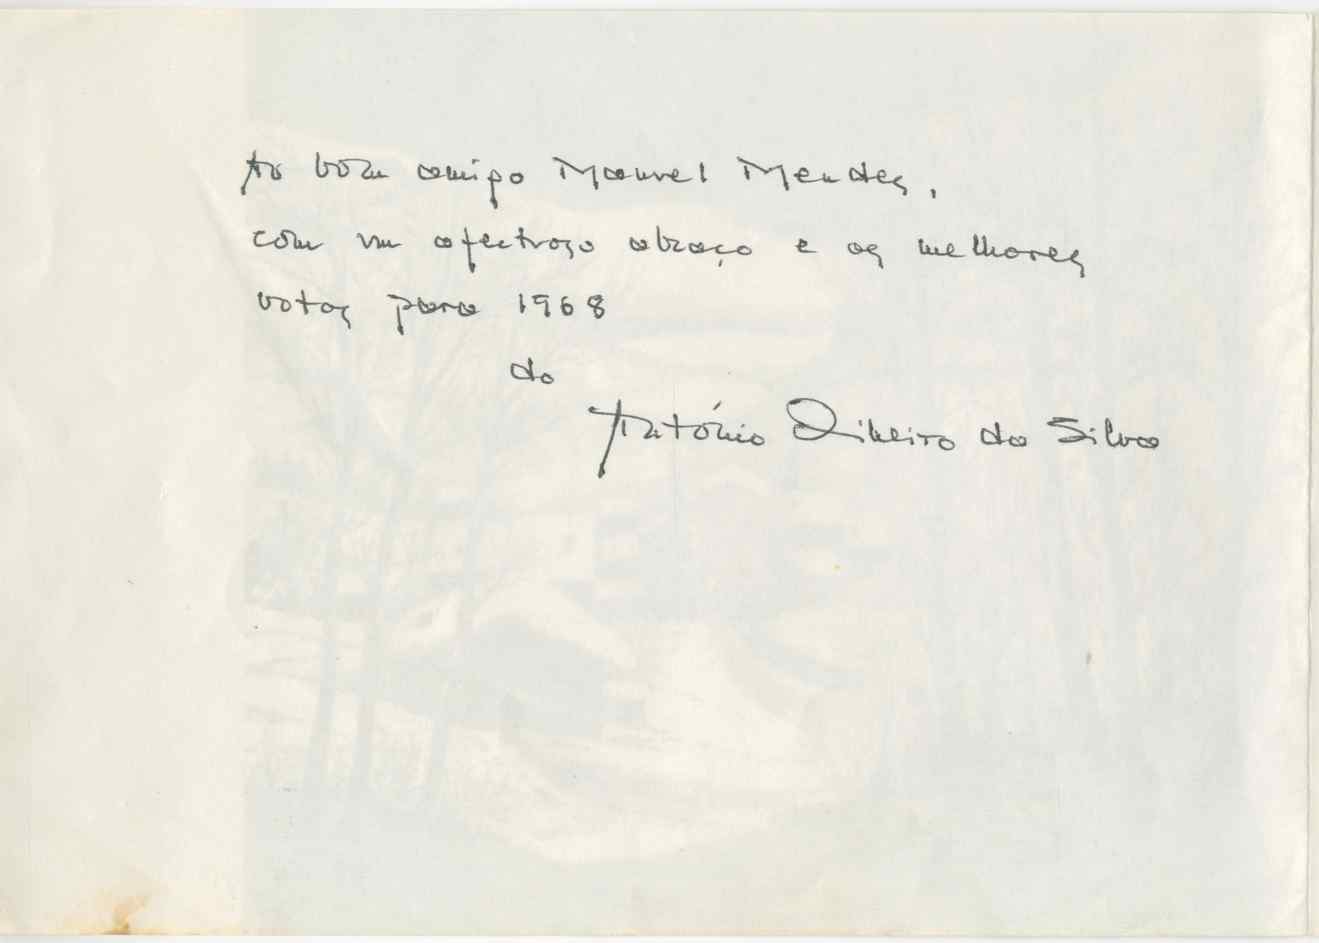 Ao bom amigo Manuel Mendes,
com um afectuoso abraço e os melhores
votos para 1968
do
António Ribeiro da Silva